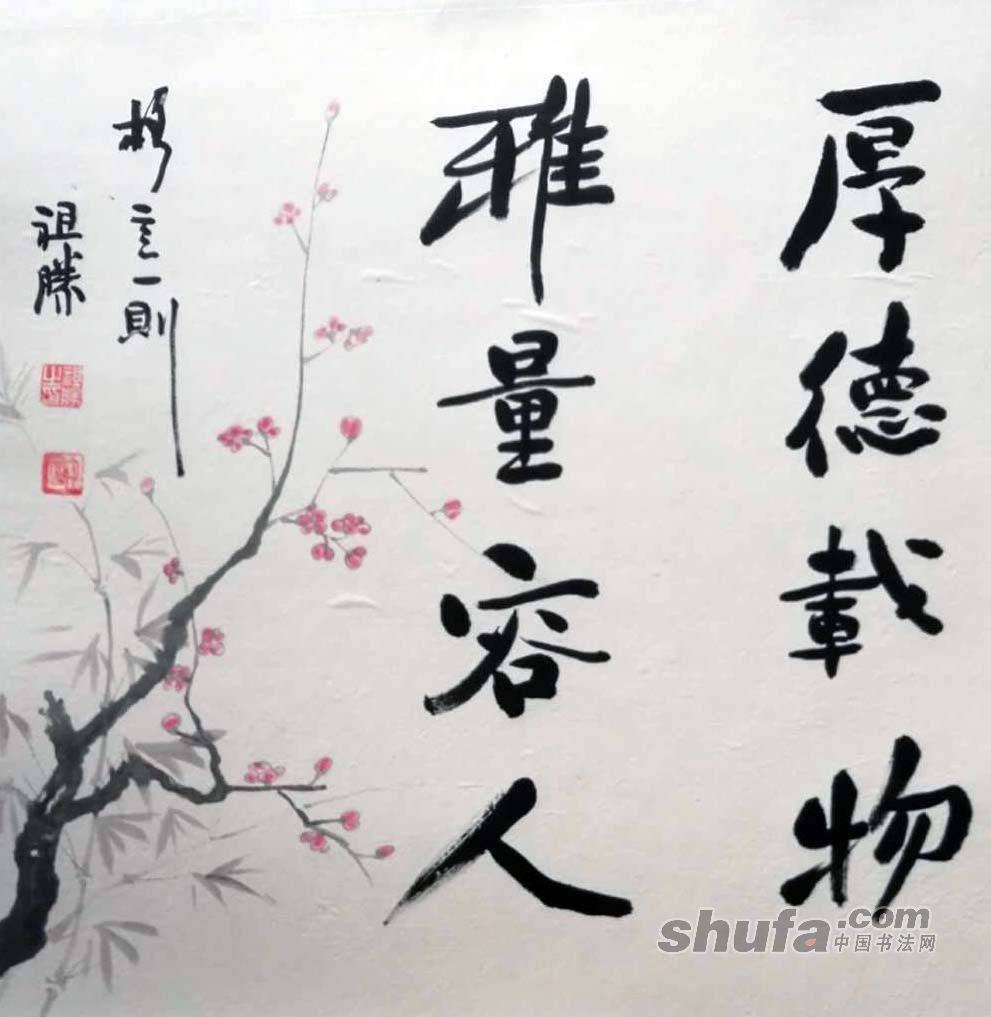 厚德载物
雅量容人
格言一则
祖勝
shufa.com
中国书法网